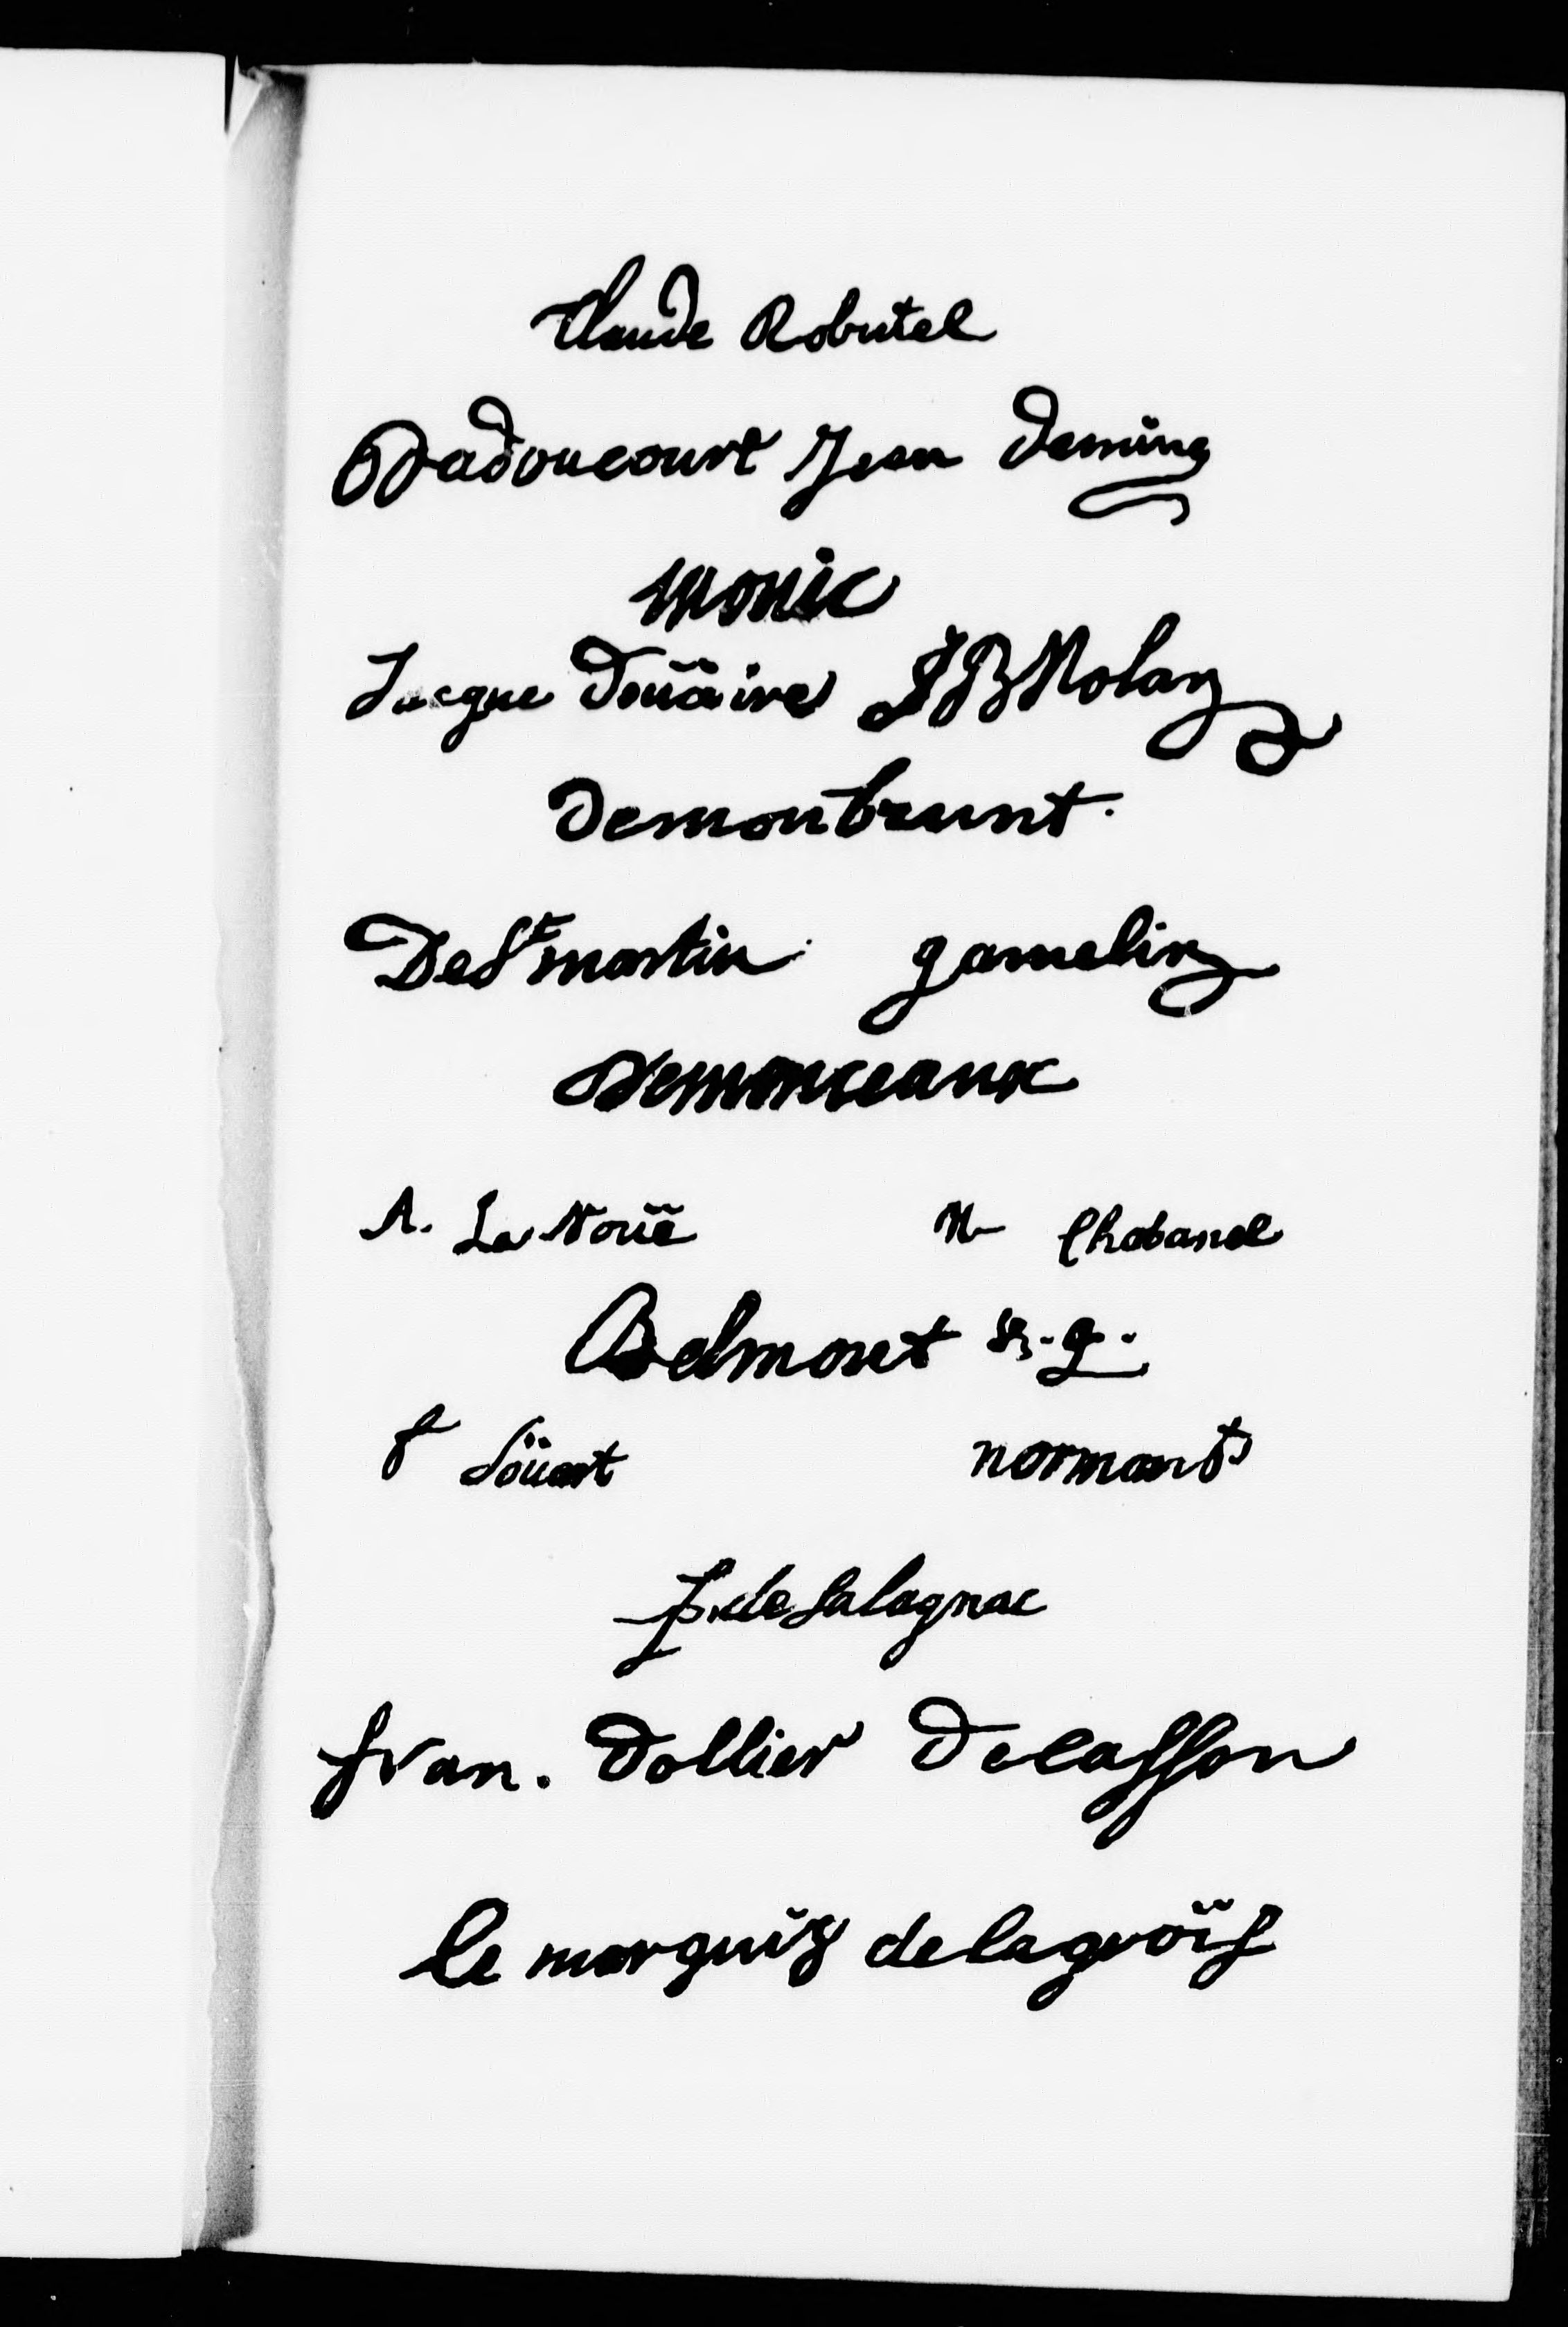 Claude Robutel
Dadoucourt Jean Demers
Monic
Jacque Doüaire JB Nolan
Demonbrunt.
De St martin gamelin
Demonceaux
A. La Noüe
N Chabanel
Belmont
f Soüart
normant
f. de Salagnac
fran. Dollier Decasson
le marquiz delagroïs